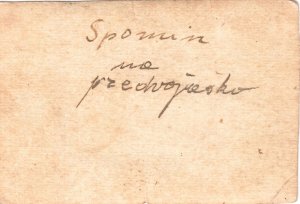 Spomin
na
predvojaško